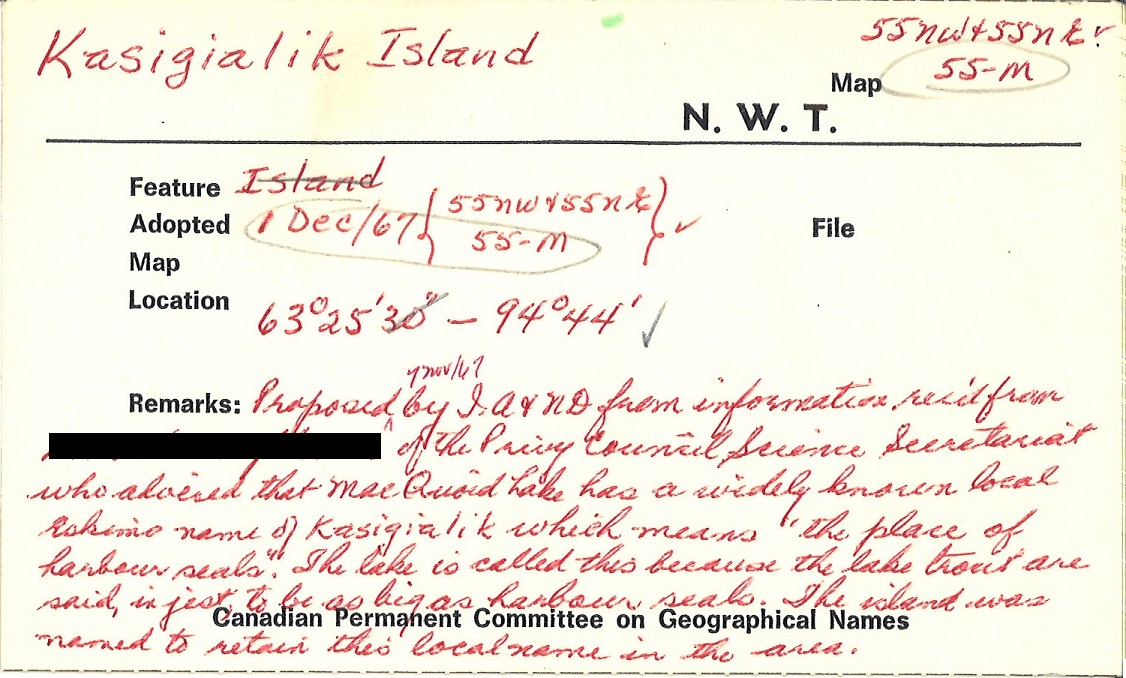 Kasigialik Island
55nw + 55n E.
Map 55-M
N. W. T.
Feature Island
Adopted 1 Dec/67 { 55nw + 55n E }
55-M
File
Map
Location 63°25'30" – 94°44'
7 nov/67
Remarks: Proposed by I.A & N.D from information rec'd from
of the Privy Council Science Secretariat
who advised that MacQuoid Lake has a widely known local
Eskimo name of Kasigialik which means "the place of
harbour seals". The lake is called this because the lake trout are
said, in jest, to be as big as harbour seals. The island was
Canadian Permanent Committee on Geographical Names
named to retain this local name in the area.